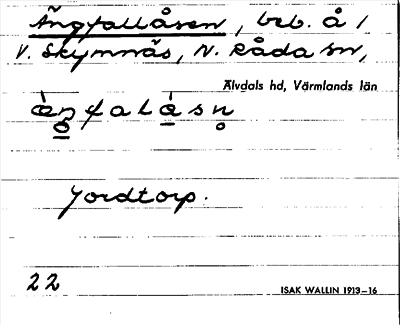 Ängfallåsen, beb. å 1
V. Skymnäs, N. Råda sn,
Älvdals hd, Värmlands län
Jordtorp.
22
ISAK WALLIN 1913–16